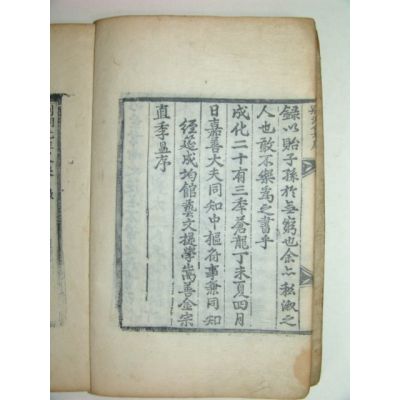 錄以貽子孫於無窮也余亦私淑之
人也敢不樂爲之書乎
成化二十有三季蒼龍丁未夏四月
日嘉善大夫同知中樞府事兼同知
經筵成均館藝文提學嵩善金宗
直季昷序